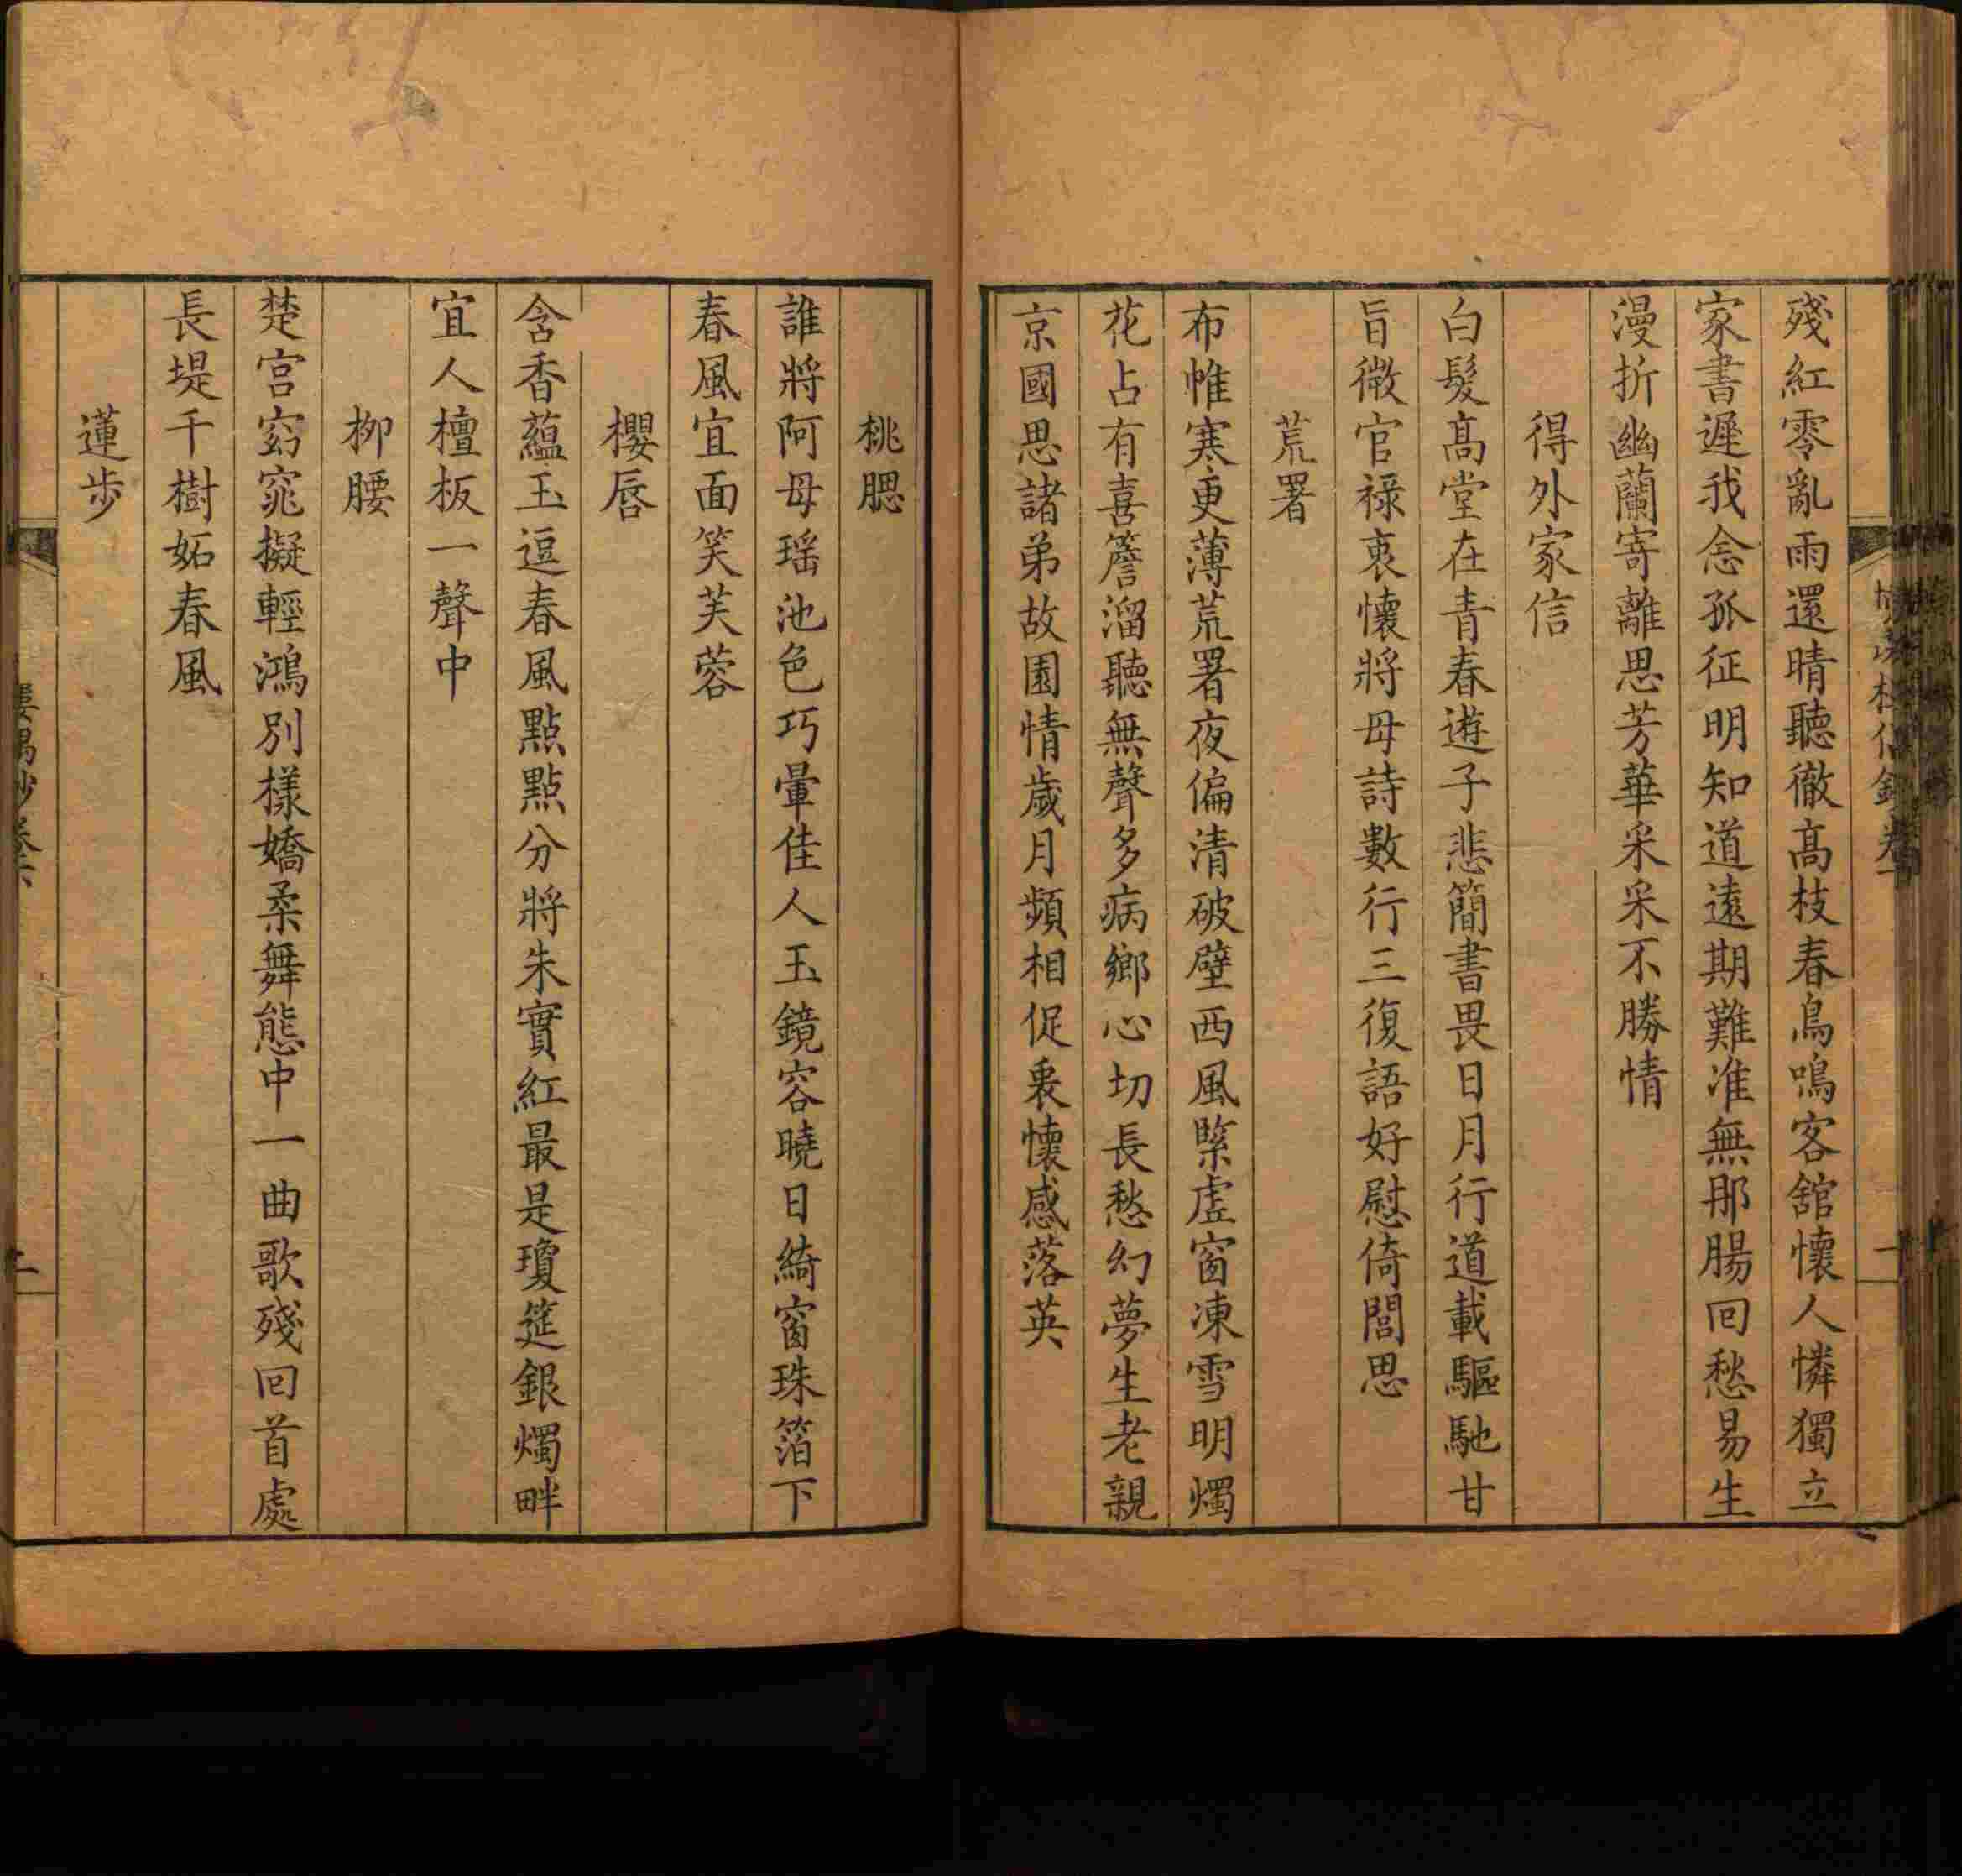 殘紅零亂雨還晴聽徹高枝春鳥鳴客舘懷人憐獨立
家書遲我念孤征明知道遠期難准無那腸回愁易生
漫折幽蘭寄離思芳華采采不勝情
得外家信
白髮高堂在青春遊子悲簡書畏日月行道載驅馳甘
旨微官祿衷懷將母詩數行三復語好慰倚閭思
荒署
布帷寒更薄荒署夜偏清破壁西風緊虛窗凍雪明燭
花占有喜簷溜聽無聲多病鄉心切長愁幻夢生老親
京國思諸弟故園情歲月頻相促衷懷感落英
桃腮
誰將阿母瑶池色巧暈佳人玉鏡容曉日綺窗珠箔下
春風宜面笑芙蓉
櫻唇
含香蘊玉逗春風點點分將朱實紅最是瓊筵銀燭畔
宜人檀板一聲中
柳腰
楚宮窈窕擬輕鴻別樣嬌柔舞態中一曲歌殘回首處
長堤千樹妬春風
蓮步
二